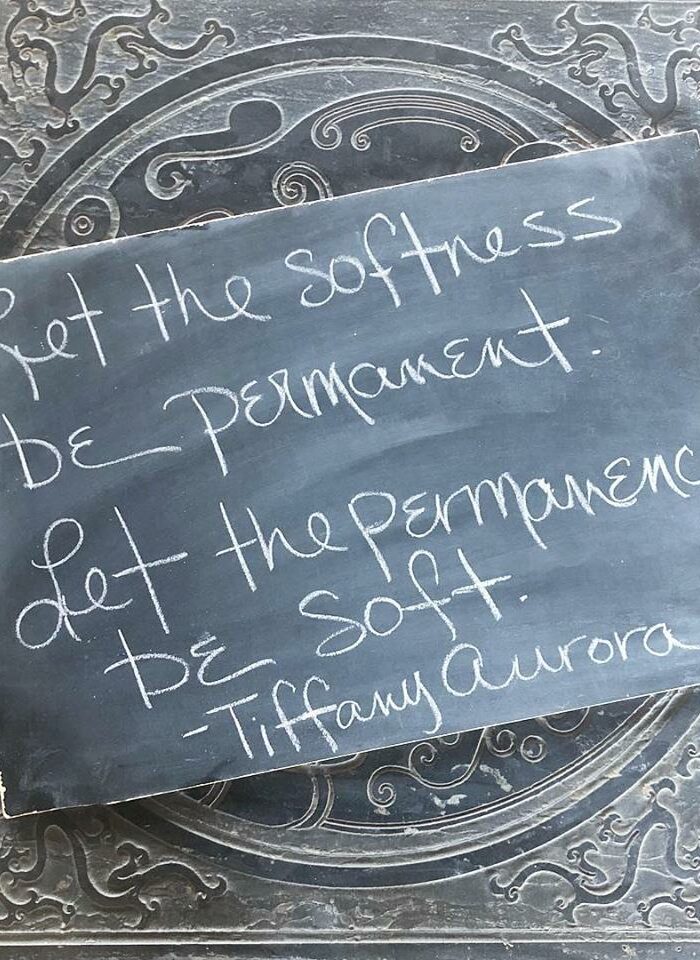 Let the softness
be permanent.
Let the permanenc
be soft.
-Tiffany Aurora